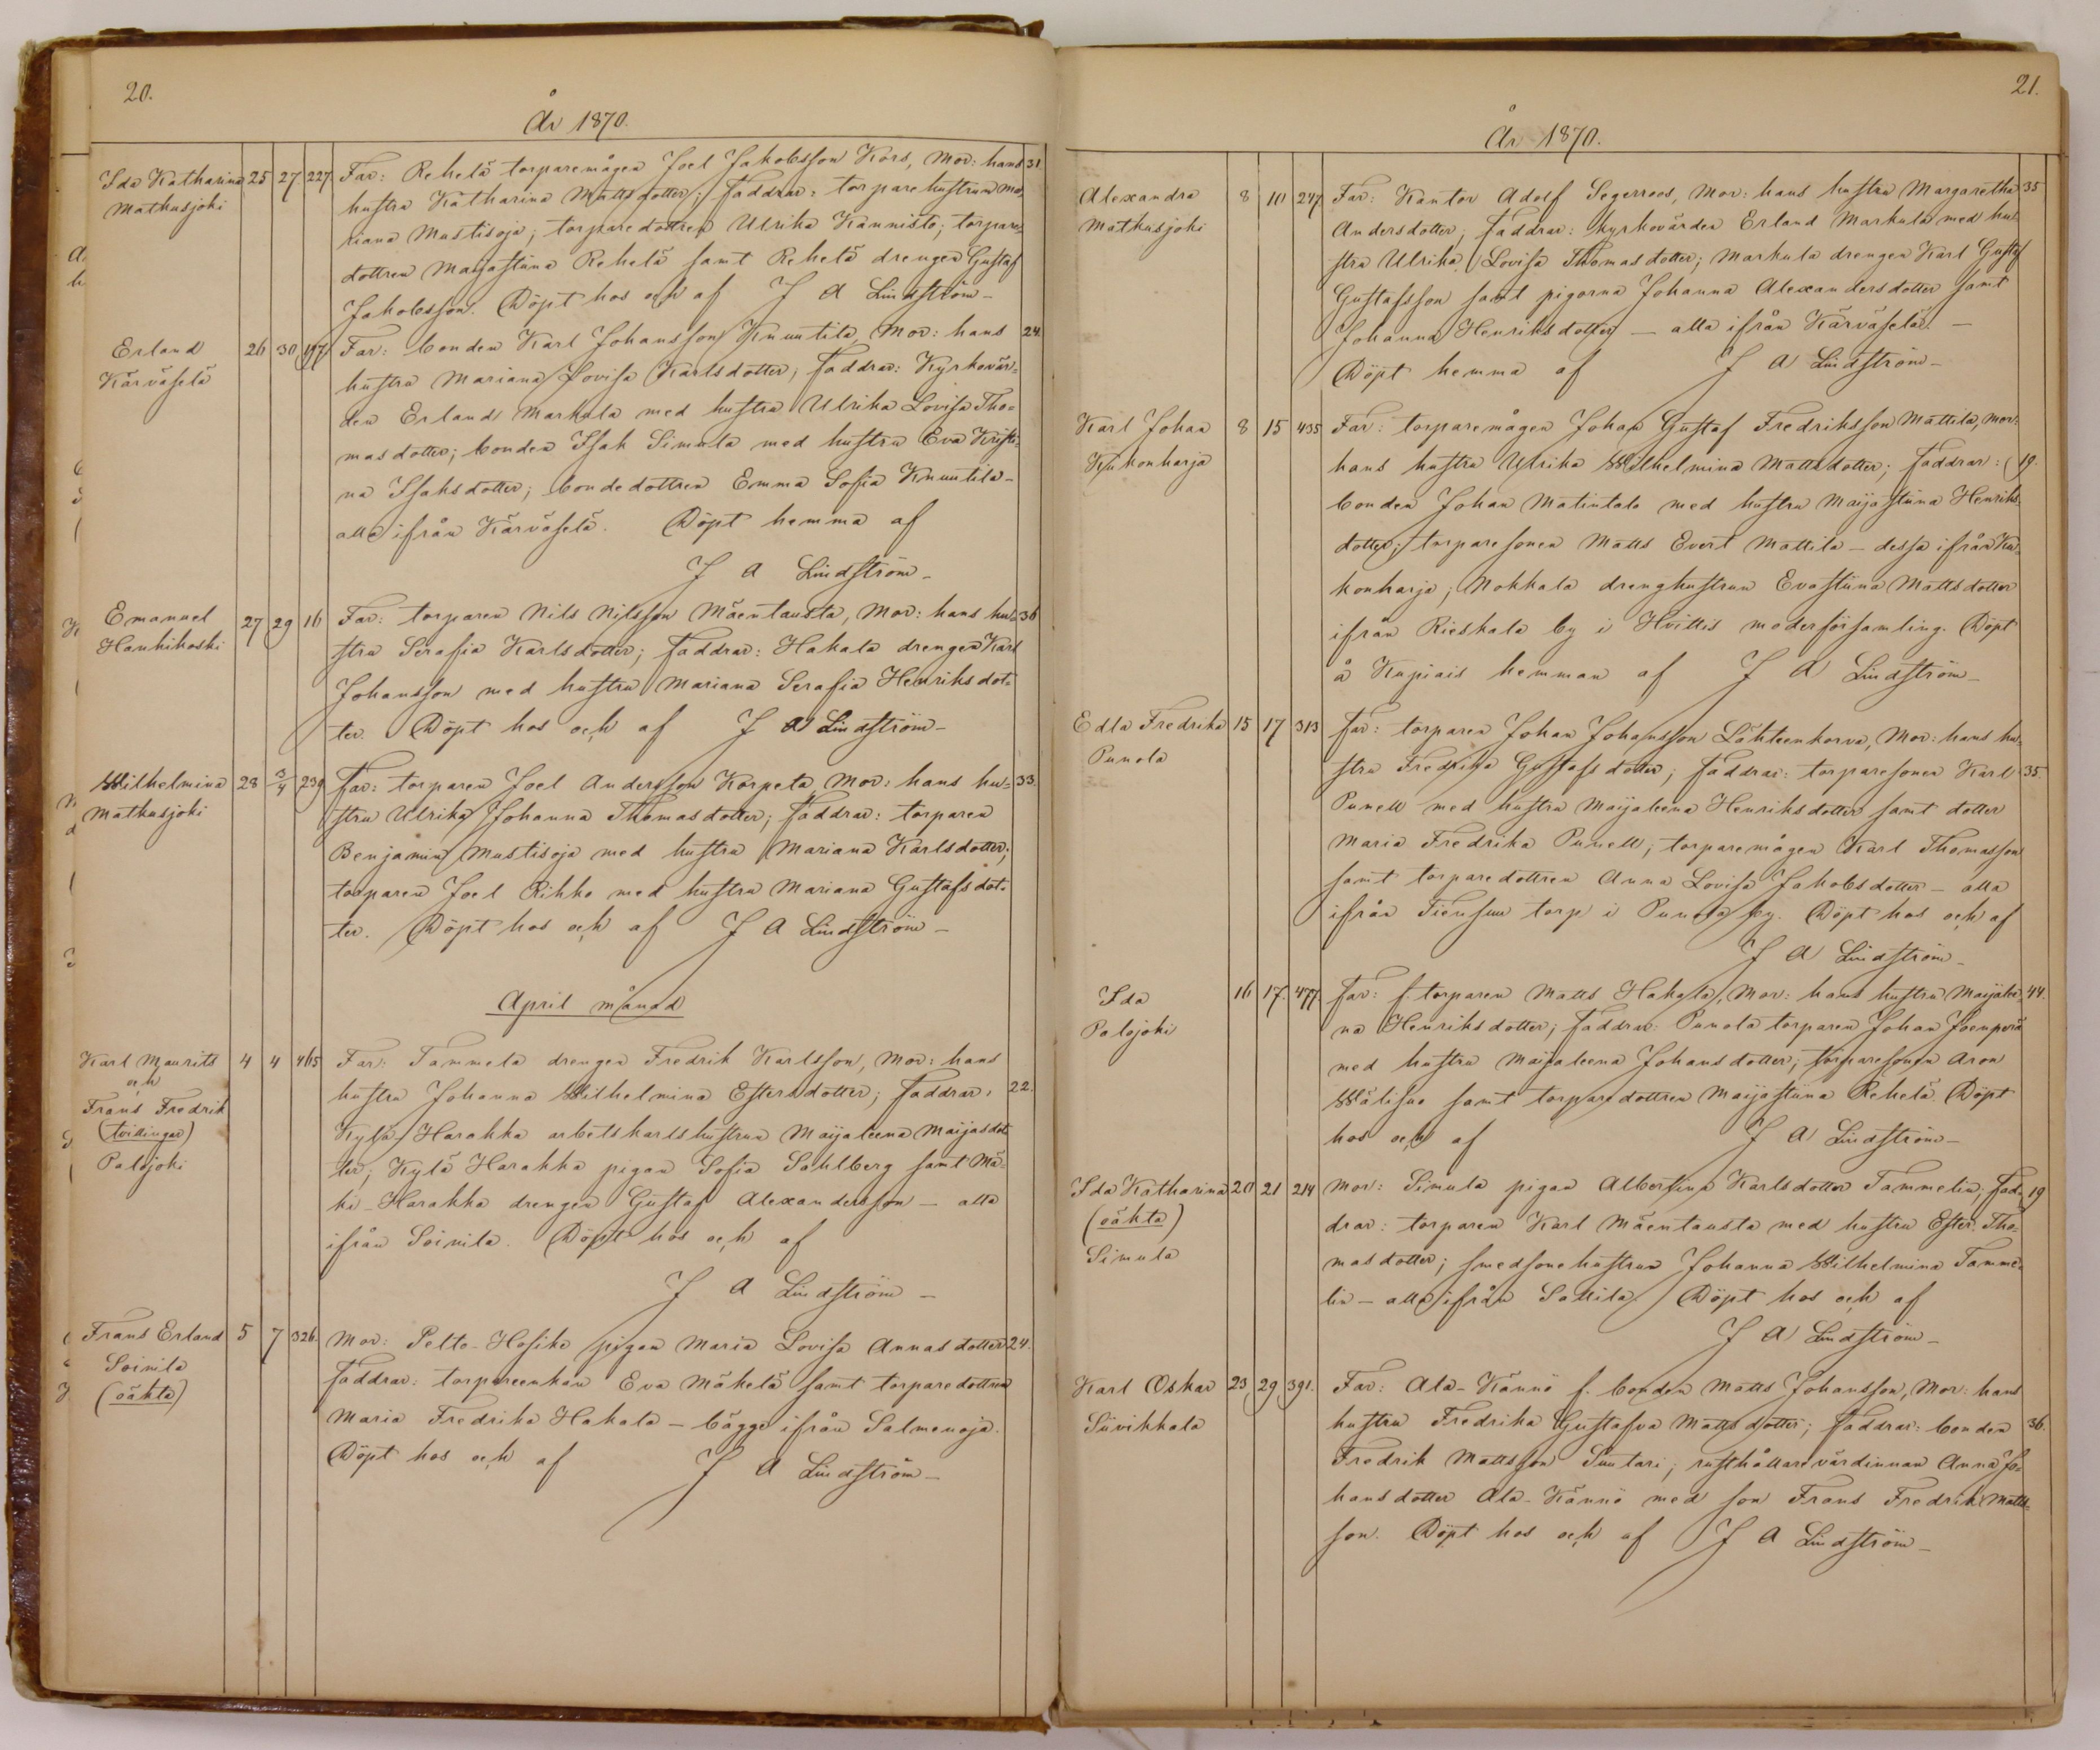 20.
År 1870.
Ida Katharina 25 27 227. Far: Rehelä torparemågen Joel Jakobsson Kors, Mor: hans 31.
Mathusjoki hustru Katharina Mattsdotter; Faddrar: torparehustrun Ma-
riana Mustisoja; torparedottren Ulrika Kannisto; torpare-
dottren Majastiina Rehelä samt Rehelä drengen Gustaf
Jakobsson. Döpt hos och af J A Lindström-
Erland 26 30 197. Far: bonden Karl Johansson Knuutila, Mor: hans 24.
Kärväselä hustru Mariana Lovisa Karlsdotter; Faddrar: Kyrkovär-
den Erland Markula med hustru Ulrika Lovisa Tho-
masdotter; bonden Isak Simula med hustru Eva Kristi-
na Isaksdotter; bondedottren Emma Sofia Knuutila-
alla ifrån Kärväselä. Döpt hemma af
J A Lindström-
Emanuel 27 29 16 Far: torparen Nils Nilsson Mäentausta, Mor: hans hu- 36
Hanhikoski stru Serafia Karlsdotter; Faddrar: Hakala drengen Karl
Johansson med hustru Mariana Serafia Henriksdot-
ter. Döpt hos och af J A Lindström-
Wilhelmina 28 3/4 239 Far: torparen Joel Andersson Korpela, Mor: hans hu- 33.
Mathusjoki stru Ulrika Johanna Thomasdotter; Faddrar: torparen
Benjamin Mustisoja med hustru Mariana Karlsdotter;
torparen Joel Rikko med hustru Mariana Gustafsdot-
ter. Döpt hos och af J A Lindström-
April månad
Karl Maurits 4 4 465 Far: Tammela drengen Fredrik Karlsson, Mor: hans
och hustru Johanna Wilhelmina Estersdotter; Faddrar: 22.
Frans Fredrik
(tvillingar) Kylä Harakka arbetskarlshustrun Maijaleena Maijasdot-
Palojoki ter; Kylä Harakka pigan Sofia Sahlberg samt Mä-
ki-Harakka drengen Gustaf Alexandersson - alla
ifrån Soinila. Döpt hos och af
J A Lindström -
Frans Erland 5 7 326. Mor: Pelto-Hosike pigan Maria Lovisa Annasdotter 24.
Soinila Faddrar: torpareenkan Eva Mäkelä samt torparedottren
(oäkta) Maria Fredrika Hakala - bägge ifrån Salmenoja.
Döpt hos och af J A Lindström-
21.
År 1870.
Alexandra 8 10 247 Far: Kantor Adolf Segerroos, Mor: hans hustru Margaretha 35
Mathusjoki Andersdotter; Faddrar: kyrkovärden Erland Markula med hu-
stru Ulrika Lovisa Thomasdotter; Markula drengen Karl Gustaf
Gustafsson samt pigorna Johanna Alexandersdotter samt
Johanna Henriksdotter - alla ifrån Kärväselä. -
Döpt hemma af J A Lindström-
Karl Johan 8 15 435 Far: torparemågen Johan Gustaf Fredriksson Mattila, Mor:
Kukonharja hans hustru Ulrika Wilhelmina Mattsdotter; Faddrar: 19.
bonden Johan Matintalo med hustru Maijastiina Henriks-
dotter; torparesonen Matts Evert Mattila - dessa ifrån Ku-
konharja; Nokkala drenghustrun Evastiina Mattsdotter
ifrån Rieskala by i Hvittis moderförsamling. Döpt
å Kupiais hemman af J A Lindström-
Edla Fredrika 15 17 313 Far: torparen Johan Johansson Lähteenkorva, Mor: hans hu-
Punola stru Fredrika Gustafsdotter; Faddrar: torparesonen Karl 35.
Punell med hustru Maijaleena Henriksdotter samt dotter
Maria Fredrika Punell; torparemågen Karl Thomasson
samt torparedottren Anna Lovisa Jakobsdotter - alla
ifrån Tiensuu torp i Punola by. Döpt hos och af
J A Lindström-
Ida 16 17. 477 Far: f. torparen Matts Hakala, Mor: hans hustru Maijalee- 44.
Palojoki na Henriksdotter; Faddrar: Punola torparen Johan Joenperä
med hustru Maijaleena Johansdotter; torparesonen Aron
Wälisuo samt torparedottren Maijastiina Rehelä. Döpt
hos och af J A Lindström-
Ida Katharina 20 21 214 Mor: Simula pigan Albertina Karlsdotter Tammelin; Fad- 19
(oäkta) drar: torparen Karl Mäentausta med hustru Ester Tho-
Simula masdotter; smedsonehustrun Johanna Wilhelmina Tamme-
lin - alla ifrån Sallila. Döpt hos och af
J A Lindström-
Karl Oskar 23 29 391. Far: Ala-Kännö f. bonden Matts Johansson, Mor: hans
Suvikkala hustru Fredrika Gustafva Mattsdotter; Faddrar: bonden 36.
Fredrik Mattsson Suutari; rusthållarevärdinnan Anna Jo-
hansdotter Ala-Kännö med son Frans Fredrik Matts-
son. Döpt hos och af J A Lindström-